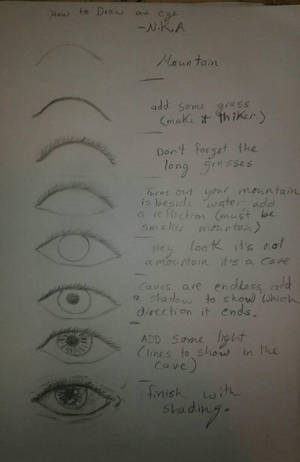 How to Draw an eye
-N.K.A
Mountain
add some grass
(make it thiker)
Don't forget the
long grasses
Turns out your mountain
is beside water add
a reflection (must be
smaller mountain)
Hey look it's not
a mountain it's a cave
Caves are endless add
a shadow to show which
direction it ends.
ADD some light
(lines to show in the
cave)
finish with
shading.